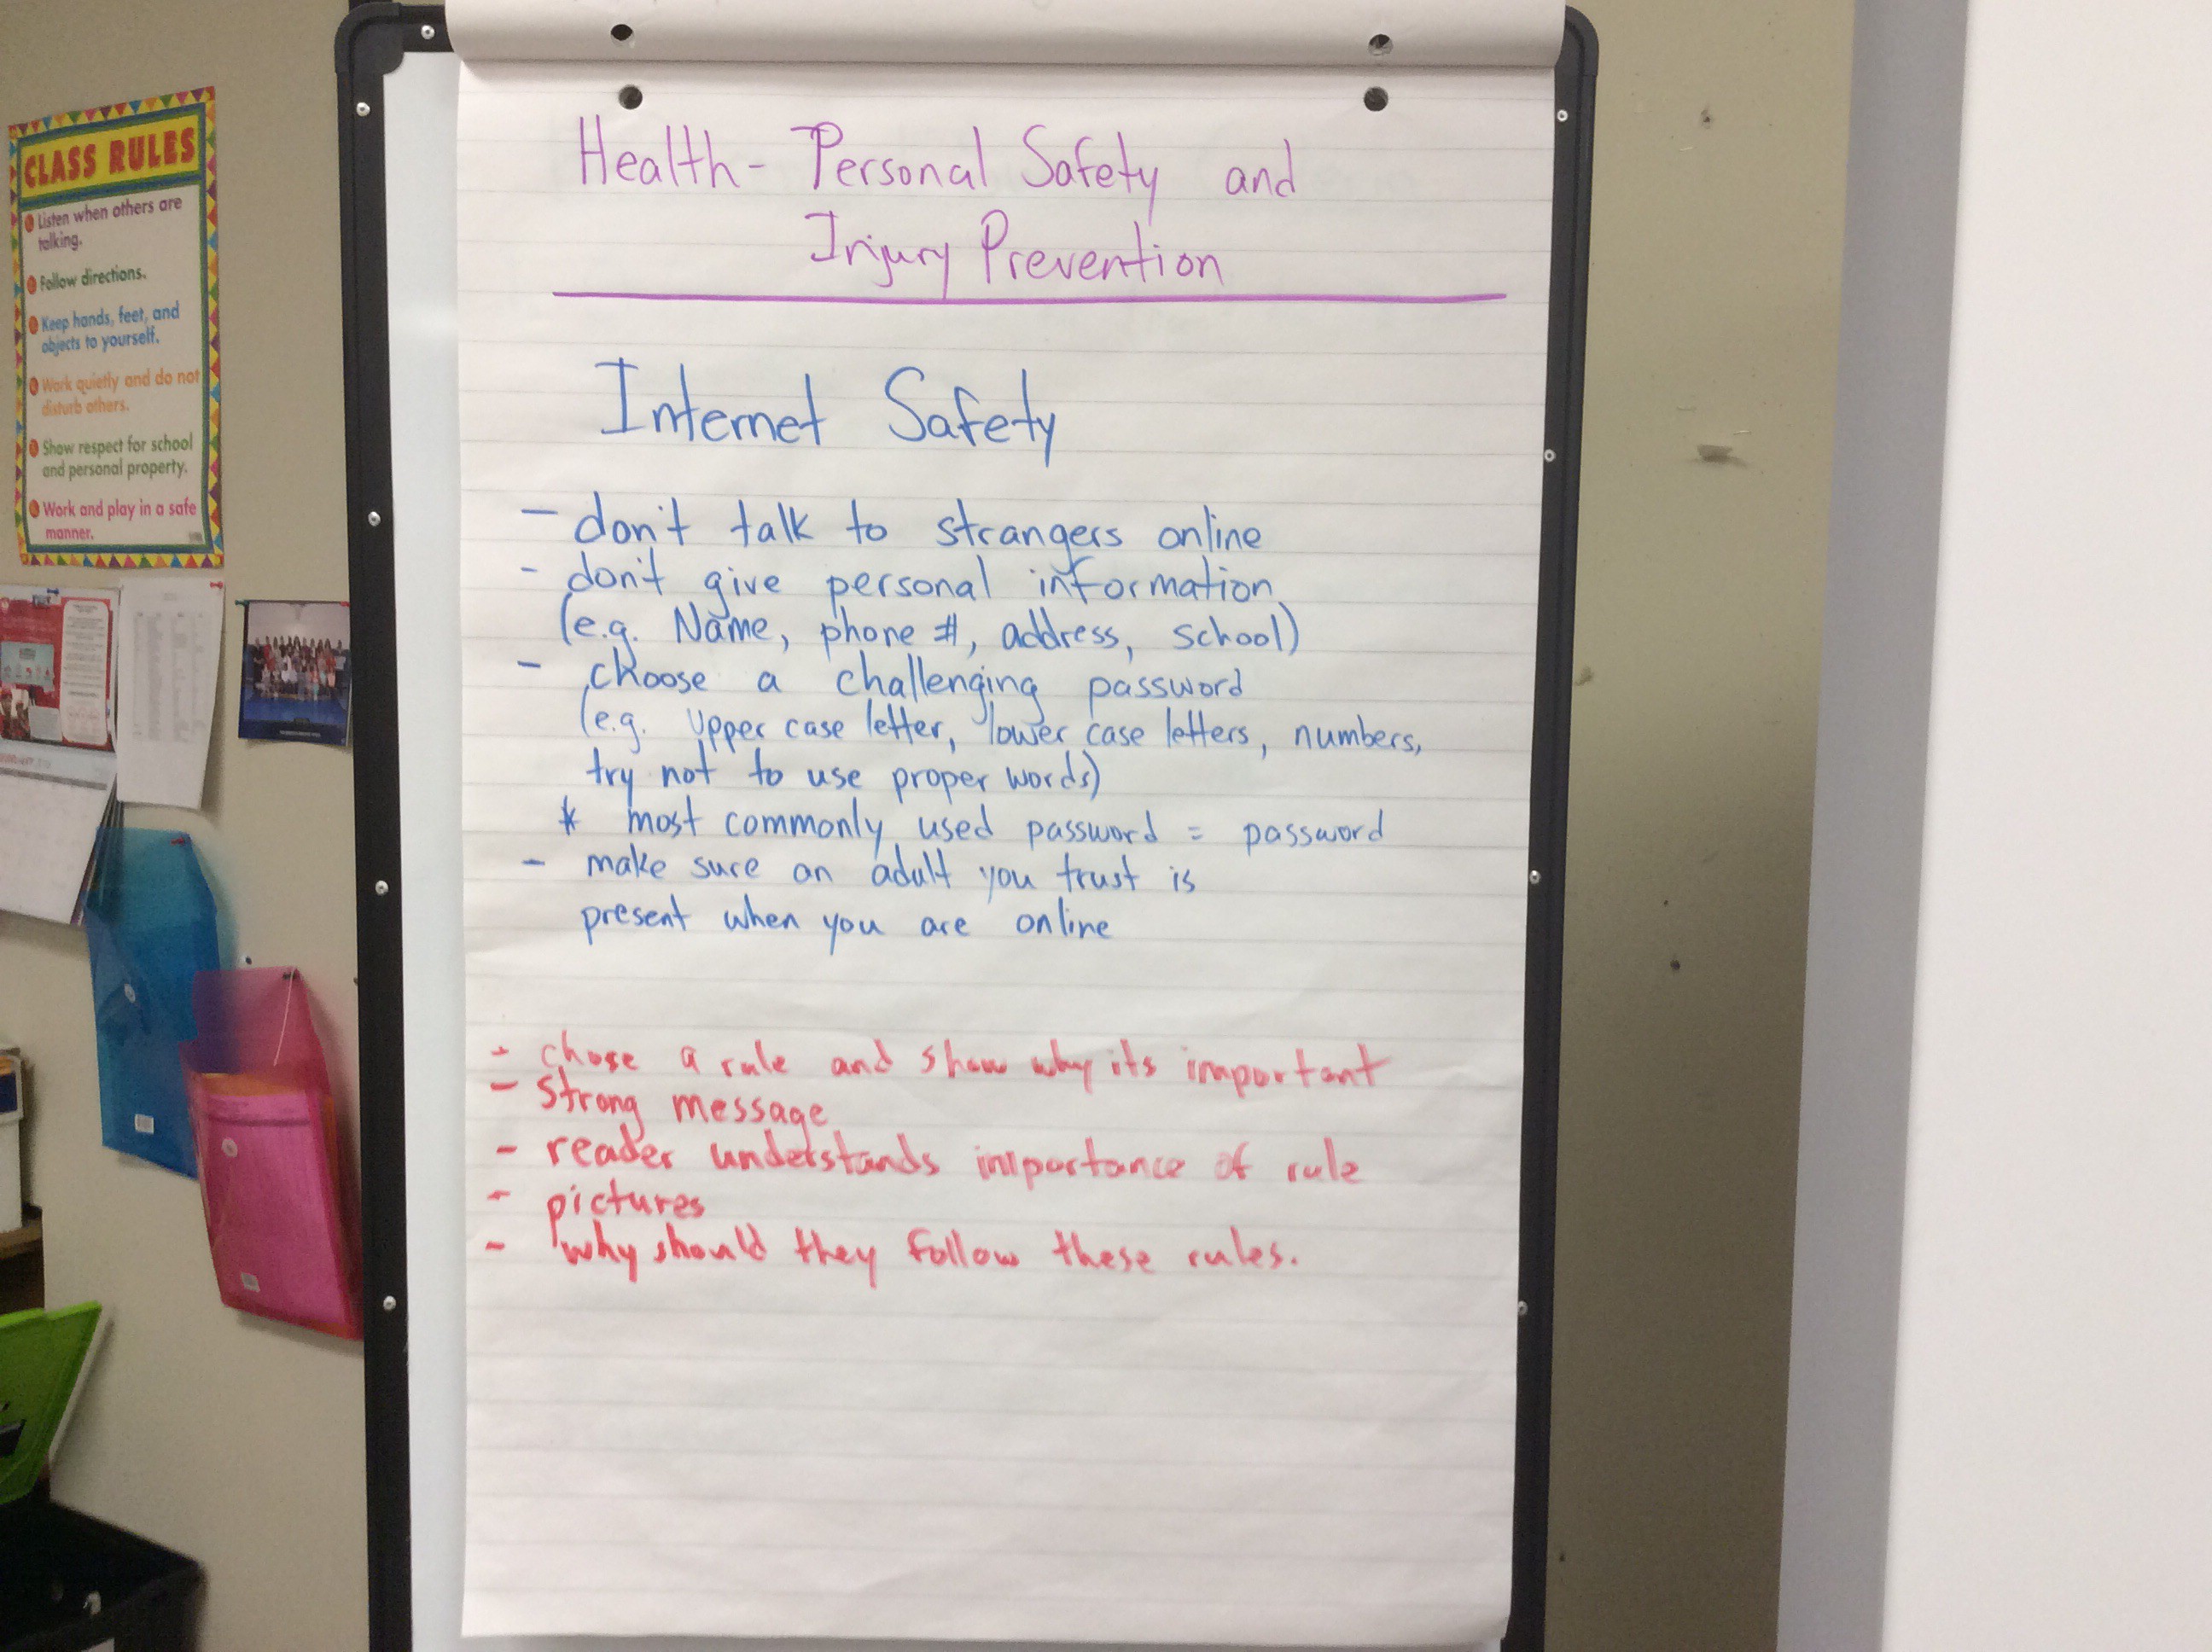 CLASS RULES
Listen when others are
talking.
Follow directions.
Keep hands, feet, and
objects to yourself.
Work quietly and do not
disturb others.
Show respect for school
and personal property.
Work and play in a safe
manner.
Health - Personal Safety and
Injury Prevention
Internet Safety
- don't talk to strangers online
- don't give personal information
(e.g. Name, phone #, address, school)
- choose a challenging password
(e.g. Upper case letter, lower case letters, numbers,
try not to use proper words)
* most commonly used password = password
- make sure an adult you trust is
present when you are online
- chose a rule and show why its important
- strong message
- reader understands importance of rule
- pictures
- why should they follow these rules.